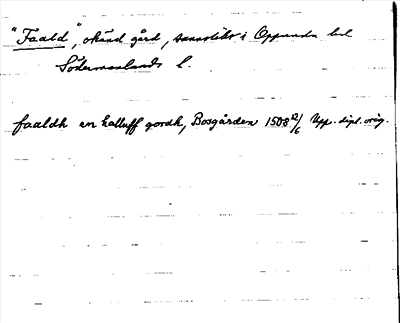 "Faald", okänd gård, sannolikt i Oppunda hd
Södermanlands l.
faaldh en halluff gordh, Bosgården 1508 12/6 Upp. dipl. orig.